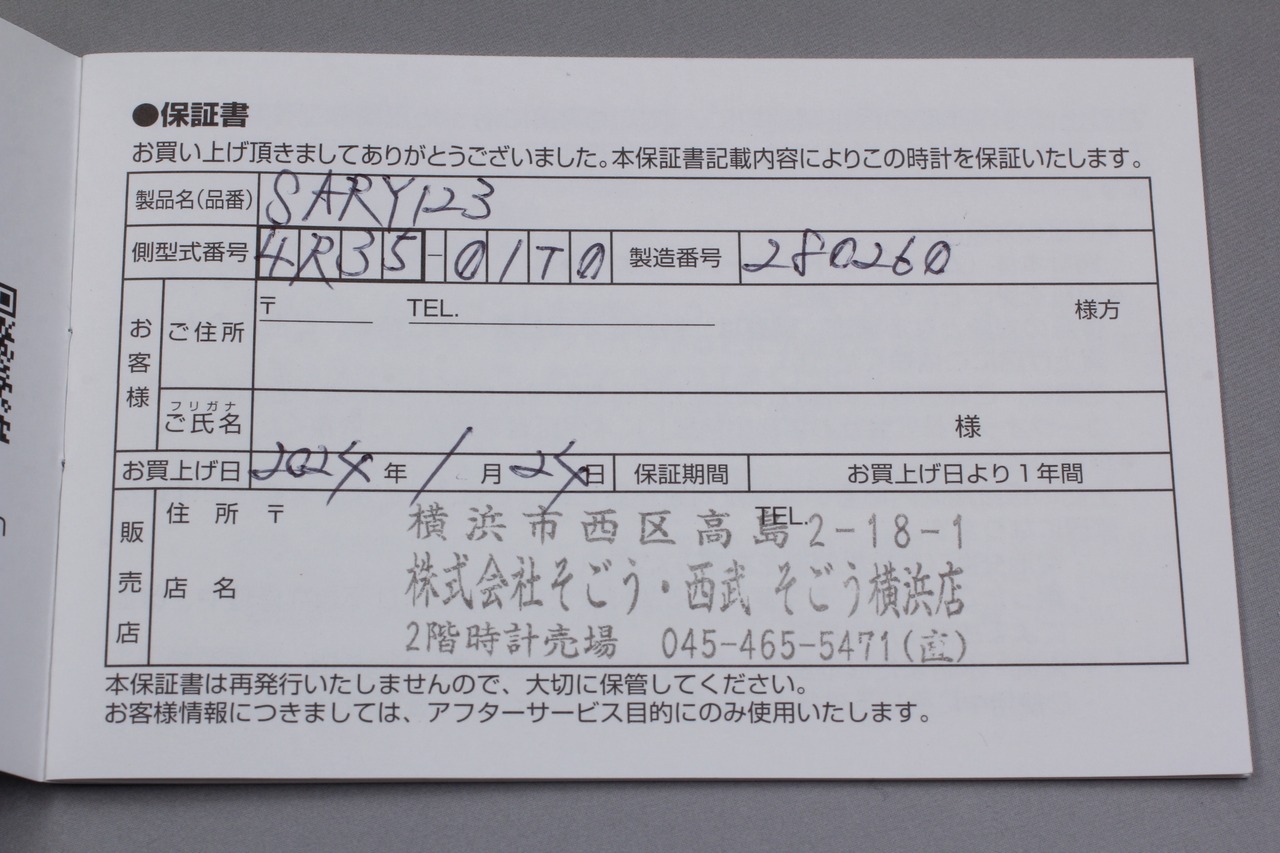 ●保証書
お買い上げ頂きましてありがとうございました。本保証書記載内容によりこの時計を保証いたします。
製品名(品番) SARY123
側型式番号 4R35-01T0 製造番号 280260
お客様 ご住所 〒 TEL. 様方
フリガナ
ご氏名 様
お買上げ日 2024年 1月 24日 保証期間 お買上げ日より1年間
販売店 住所 〒 TEL.
横浜市西区高島2-18-1
店名 株式会社そごう・西武 そごう横浜店
2階時計売場 045-465-5471(直)
本保証書は再発行いたしませんので、大切に保管してください。
お客様情報につきましては、アフターサービス目的にのみ使用いたします。